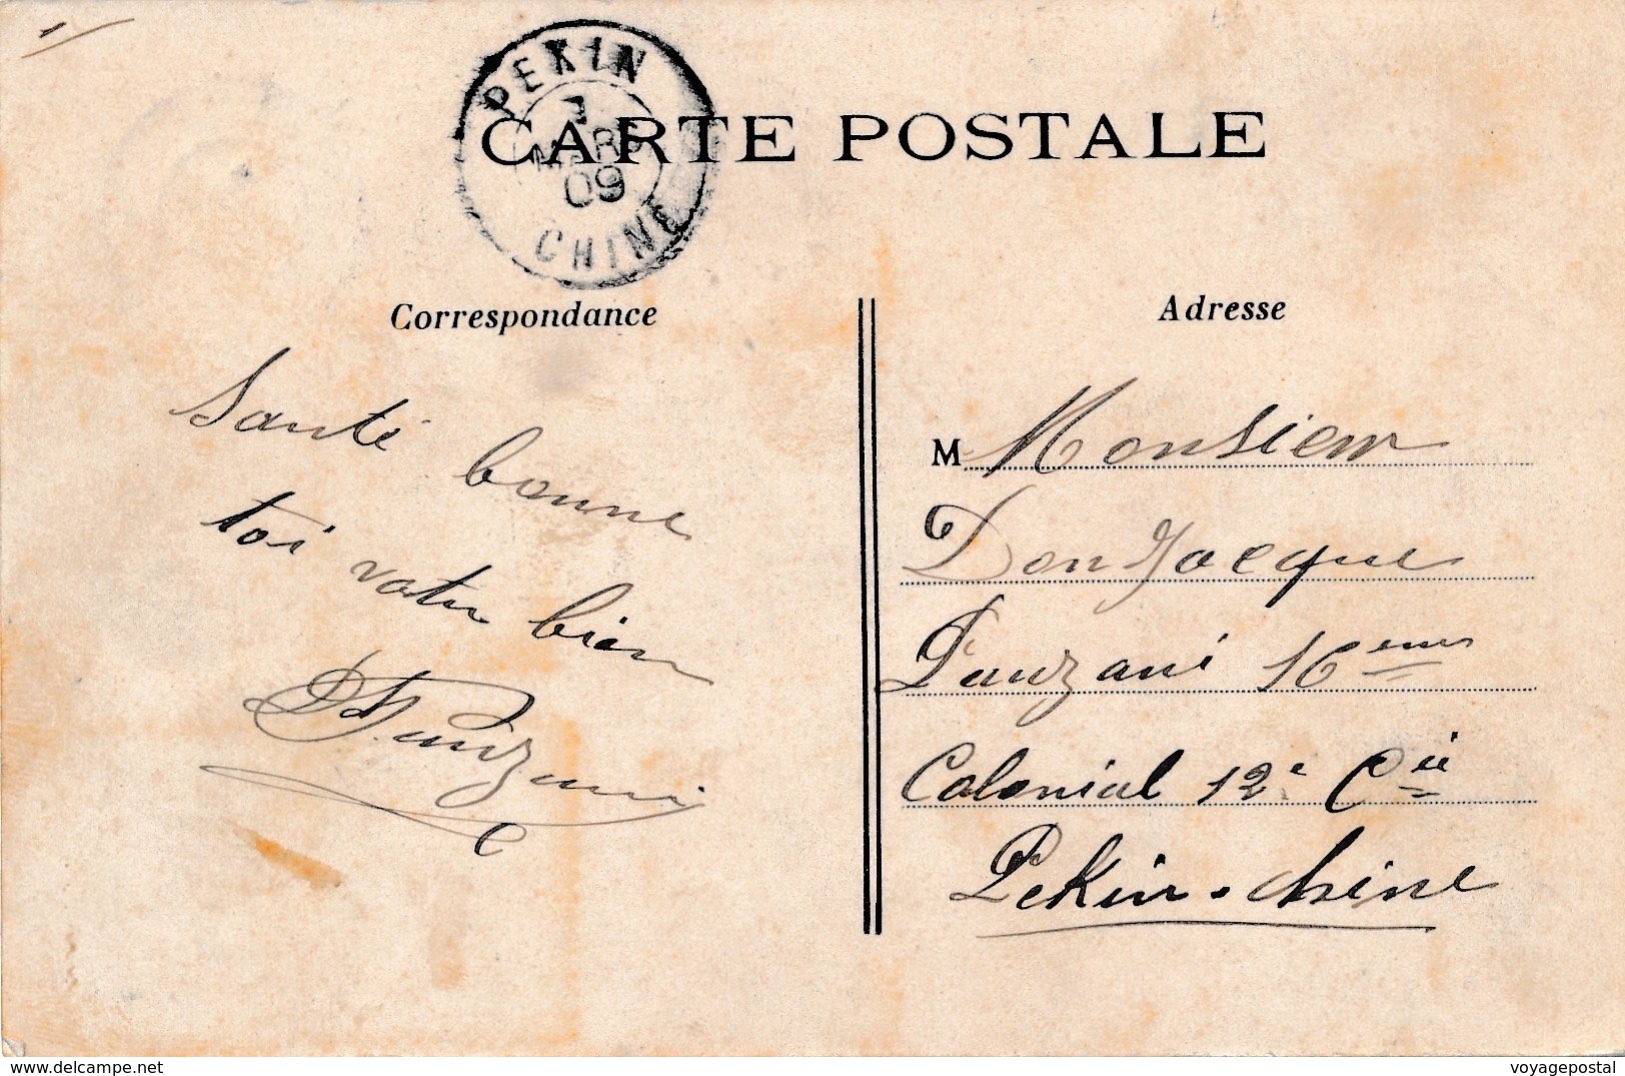 PEKIN
7
MARS
09
CHINE
CARTE POSTALE
Correspondance
Santé bonne
toi votre bien
Adresse
M Monsieur
Don Jacque
Panzani 16eme
Colonial 12e Cie
Pekin. Chine
delcampe.net
voyagepostal